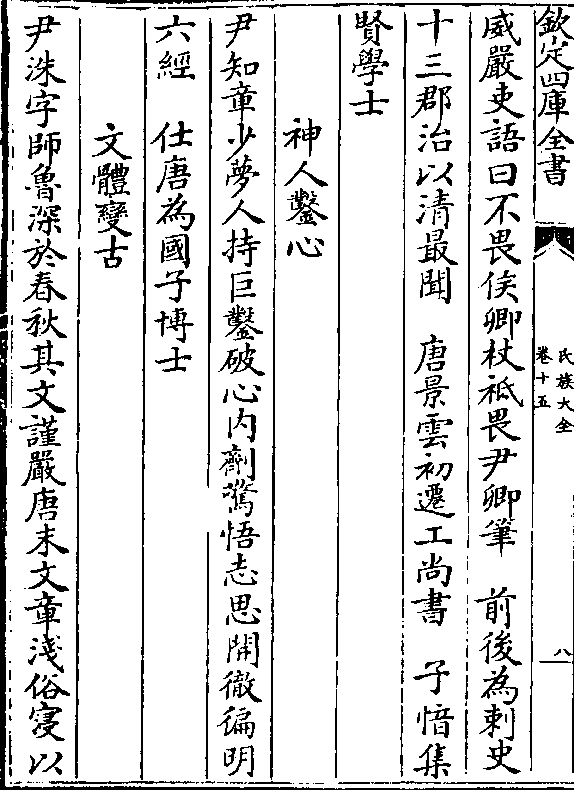 欽定四庫全書
氏族大全
卷十五
八
威嚴吏語曰不畏侯卿杖祗畏尹卿筆　前後為刺史
十三郡治以清最聞　唐景雲初遷工尚書　子愔集
賢學士
神人鑿心
尹知章少夢人持巨鑿破心内劑驚悟志思開徹徧明
六經　仕唐為國子博士
文體變古
尹洙字師魯深於春秋其文謹嚴唐末文章淺俗寖以